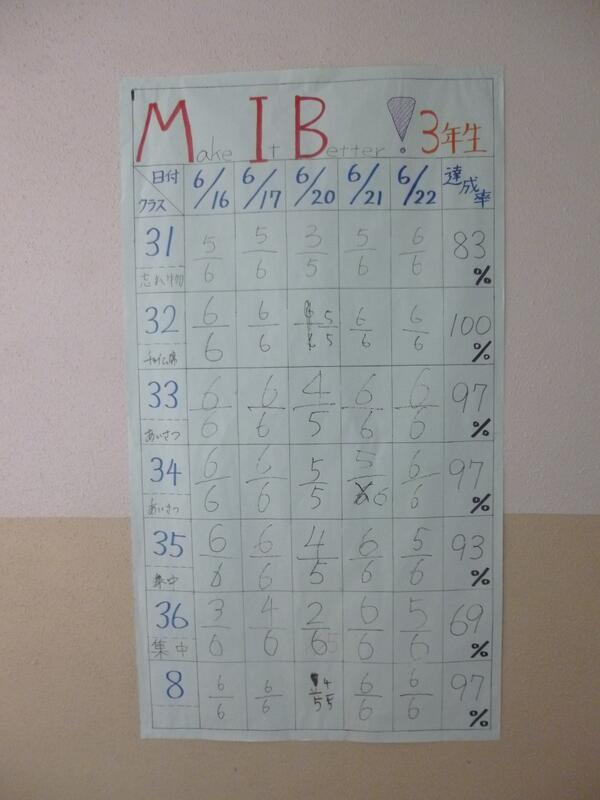 Make It Better ! 3年生
日付 クラス 6/16 6/17 6/20 6/21 6/22 達成率
31 忘れ物 5/6 5/6 3/5 5/6 6/6 83%
32 チャイム席 6/6 6/6 5/5 6/6 6/6 100%
33 あいさつ 6/6 6/6 4/5 6/6 6/6 97%
34 あいさつ 6/6 6/6 5/5 5/6 6/6 97%
35 集中 6/6 6/6 4/5 6/6 5/6 93%
36 集中 3/6 4/6 2/5 6/6 5/6 69%
8 6/6 6/6 4/5 6/6 6/6 97%